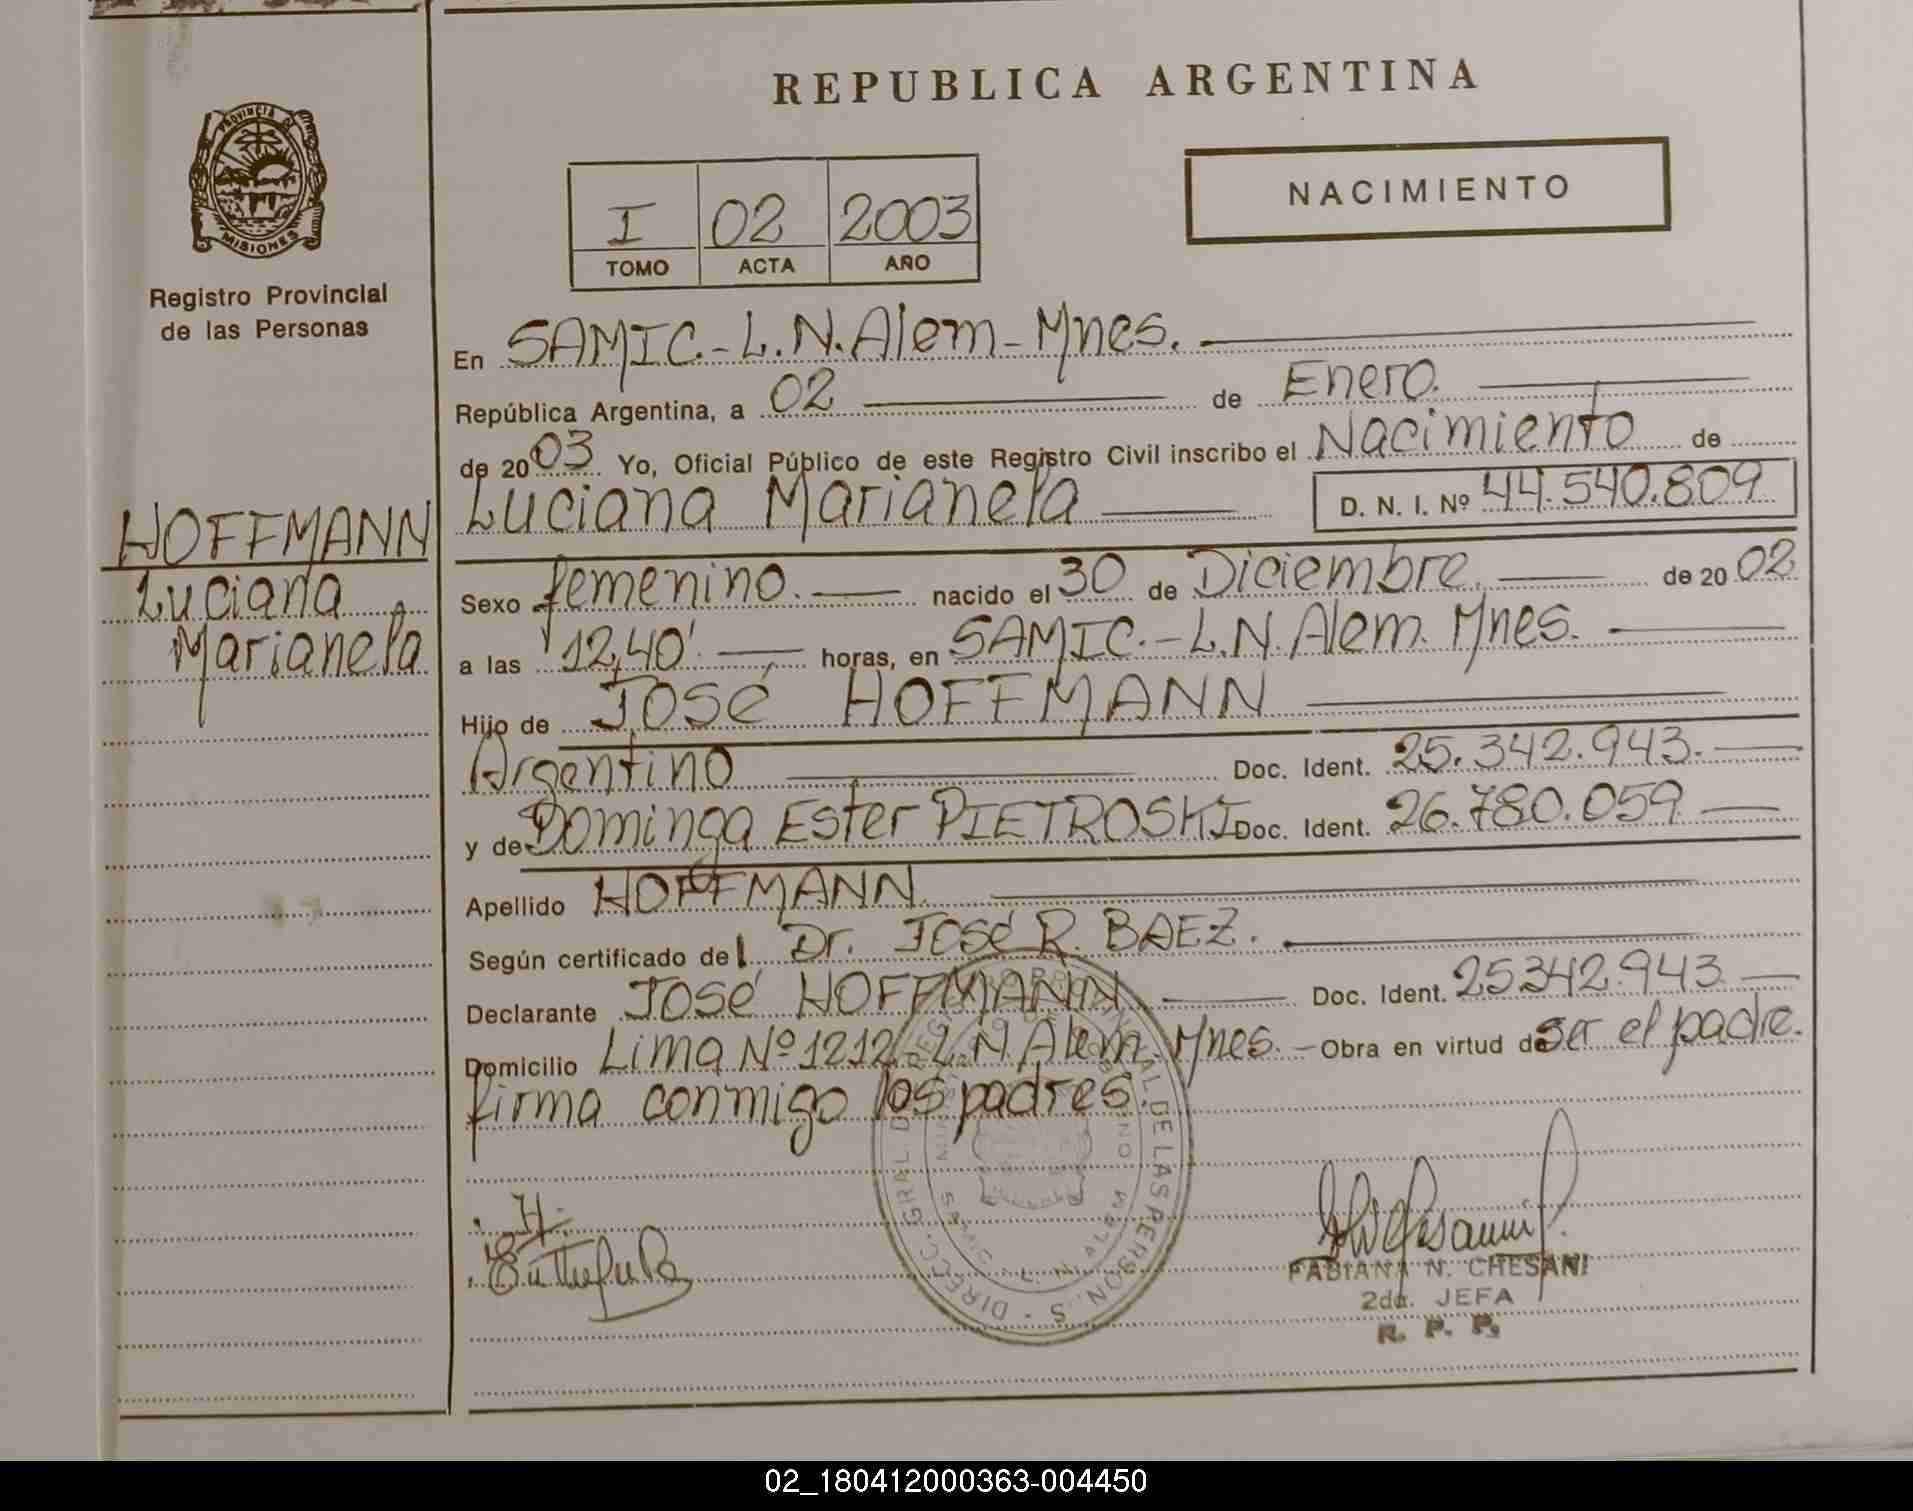 REPUBLICA ARGENTINA
PROVINCIA DE
MISIONES
Registro Provincial
de las Personas
I 02 2003
TOMO ACTA AÑO
NACIMIENTO
HOFFMANN
Luciana
Marianela
En SAMIC.-L.N.Alem-Mnes.
República Argentina, a 02 de Enero.
de 2003 Yo, Oficial Público de este Registro Civil inscribo el Nacimiento de
Luciana Marianela D. N. I. Nº 44.540.809
Sexo femenino. nacido el 30 de Diciembre. de 2002
a las 12,40' horas, en SAMIC.-L.N.Alem. Mnes.
Hijo de José HOFFMANN
Argentino Doc. Ident. 25.342.943.
y de Dominga Ester PIETROSKI Doc. Ident. 26.780.059
Apellido HOFFMANN.
Según certificado del Dr. José R. BAEZ.
Declarante José HOFFMANN Doc. Ident. 25342.943
Domicilio Lima Nº 1212-L.N Alem-Mnes. Obra en virtud de ser el padre.
firma conmigo los padres.
FABIANA N. CHESANI
2da. JEFA
R. P. P.
02_180412000363-004450